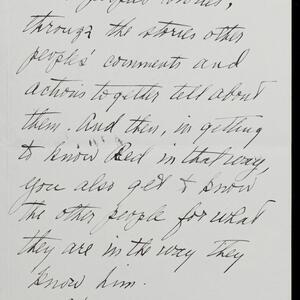 through the stories other
people's comments and
actions together tell about
them. And then, in getting
to know Red in that way,
you also get to know
the other people for what
they are in the way they
know him.